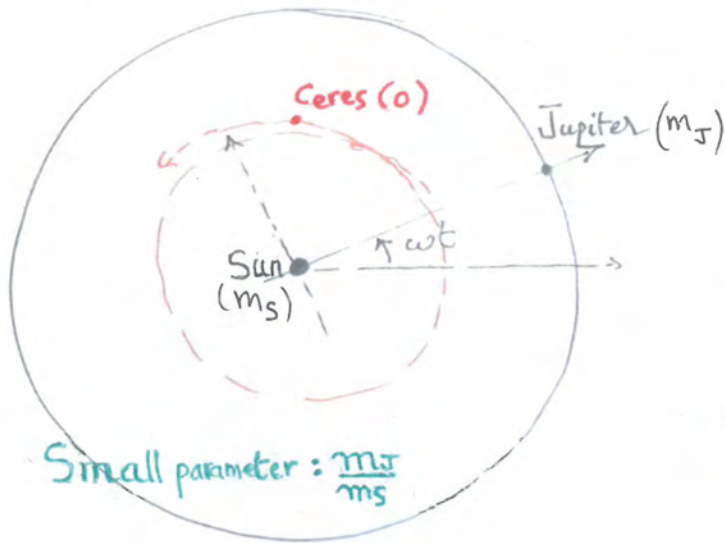 Ceres (0)
Jupiter (mJ)
ωt
Sun
(mS)
Small parameter : mJ/mS